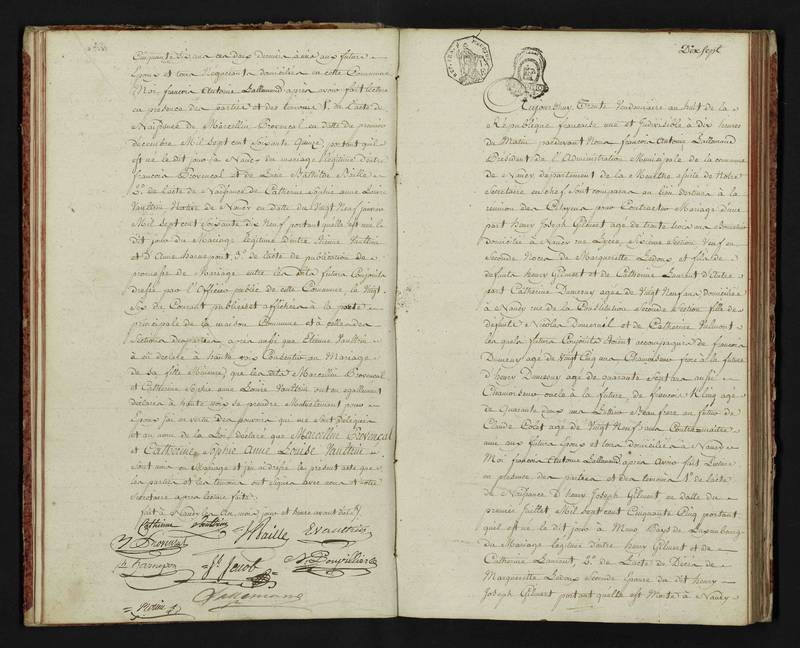 Cinquante six ans ces deux derniers amis aux futurs
Epoux et tous Negociants domiciliés en cette Commune
Moi françois Antoine Lallemand après avoir fait lecture
en presence des parties et des temoins 1o. de l'acte de
Naissance de Marcellin Provençal en datte du premier
decembre Mil sept cent soixante Quinze portant quil
est né le dit jour à Nancy du mariage légitime d'entre
françois Provençal et de Baille
2o. de l'acte de Naissance de Catherine Sophie anne Louise
Vautrin Native de Nancy en datte du Vingt Neuf janvier
Mil sept cent soixante dix Neuf portant quelle est née le
dit jour du Mariage légitime d'entre Etienne Vautrin
et D. anne 3o. de l'acte de publication de
promesse de Mariage entre les dits futurs Conjoints
dressé par l'Officier public de cette Commune le Vingt
Six du Courant publiées et affichées à la porte
principale de la maison Commune et à celle des
Sections après aussi que Etienne Vautrin
a déclaré à haute voix Consentir au Mariage
de sa fille Mineure, que les dits Marcellin Provençal
et Catherine Sophie anne Louise Vautrin ont eu egallement
déclaré à haute voix se prendre Mutuelement pour
Epoux j'ai en vertu des pouvoirs qui me sont délégués
et au nom de la Loi, déclaré que Marcellin Provençal
et Catherine Sophie Anne Louise Vautrin
sont unis en Mariage et j'ai redigé le present acte que
les parties et les temoins ont signés avec nous et notre
Secretaire après lecture faite.
fait à Nancy les an, mois jour et heure avant dit.
Catherine Vautrin
M Provençal Baille E Vautrin
Jacob
Lallemand
Dix sept
Aujourdhuy Trente Vendemiaire an huit de la
République française une et Indivisible à dix heures
du Matin pardevant Nous françois Antoine Lallemand
President de l'Administration Municipale de la commune
de Nancy departement de la Meurthe assisté de Notre
Secretaire en chef sont comparus au lieu destiné à la
réunion des Citoyens pour Contracter Mariage d'une
part henry Joseph Gilmert agé de trente trois ans
domicilié à Nancy rue Section Neuf en
Seconde Noces de Marguerite Ledoux et fils de
defunts henry Gilmert et de Catherine Laurent d'Autre
part Catherine Dumenej agée de Vingt Neuf ans domiciliée
à Nancy rue de la Constitution Seconde Section fille de
défunts Nicolas Dumenej et de Catherine
lesquels futurs Conjoints étoient accompagnés de françois
Dumenej agé de Vingt Cinq ans Chamoiseur frère à la future
d'henry Dumenej agé de quarante Sept ans aussi
Chamoiseur oncle à la future, de françois Kling agé
de Quarante deux ans Beau frère au futur et de
Claude Colet agé de Vingt Neuf ans Contremaitre
amis aux futurs Epoux et tous domiciliés à Nancy
Moi françois Antoine Lallemand après Avoir fait Lecture
en presence des parties et des temoins 1o. de l'acte
de Naissance d'henry Joseph Gilmert en datte du
premier Juillet Mil Sept cent Cinquante Cinq portant
quil est né le dit jour à Pays de Luxembourg
du Mariage legitime d'entre henry Gilmert et de
Catherine Laurent, 2o. de l'acte de Décès de
Marguerite Ledoux Seconde Epouse du dit henry
Joseph Gilmert portant quelle est Morte à Nancy